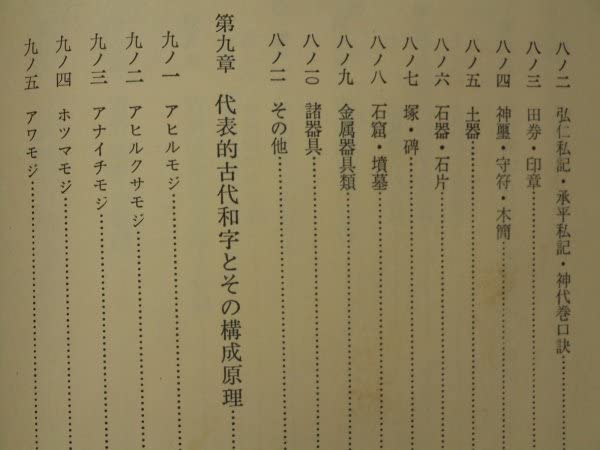 八ノ二　弘仁私記・承平私記・神代巻口訣
八ノ三　田券・印章
八ノ四　神璽・守符・木簡
八ノ五　土器
八ノ六　石器・石片
八ノ七　塚・碑
八ノ八　石窟・墳墓
八ノ九　金属器具類
八ノ一〇　諸器具
八ノ一一　その他
第九章　代表的古代和字とその構成原理
九ノ一　アヒルモジ
九ノ二　アヒルクサモジ
九ノ三　アナイチモジ
九ノ四　ホツマモジ
九ノ五　アワモジ